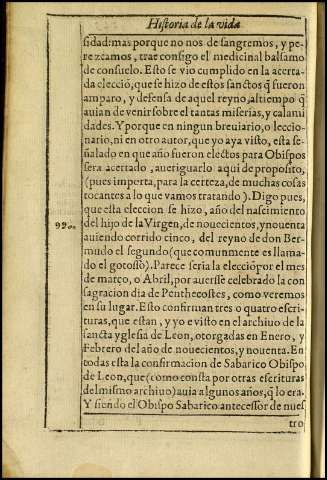 Historia de la vida
sidad: mas porque no nos desangremos, y pe-
rezcamos, trae consigo el medicinal balsamo
de consuelo. Esto se vio cumplido en la acerta-
da elecciõ, que se hizo de estos sanctos q̃ fueron
amparo, y defensa de aquel reyno, al tiempo q̃
auian de venir sobre el tantas miserias, y calami
dades. Y porque en ningun breuiario, o leccio-
nario, ni en otro autor, que yo aya visto, esta se-
ñalado en que año fueron electos para Obispos
sera acertado, aueriguarlo aqui de proposito,
(pues importa, para la certeza, de muchas cosas
tocantes a lo que vamos tratando). Digo pues,
que esta eleccion se hizo, año del nascimiento
990. del hijo de la Virgen, de nouecientos, y nouenta
auiendo corrido cinco, del reyno de don Ber-
mudo el segundo (que comunmente es llama-
do el gotosso). Parece seria la elecciõ por el mes
de março, o Abril, por auersse celebrado la con
sagracion dia de Penthecostes, como veremos
en su lugar. Esto confirman tres o quatro escri-
turas, que estan, y yo e visto en el archiuo de la
sancta yglesia de Leon, otorgadas en Enero, y
Febrero del año de nouecientos, y nouenta. En
todas esta la confirmacion de Sabarico Obispo,
de Leon, que (como consta por otras escrituras
del mismo archiuo) auia algunos años, q̃ lo era.
Y siendo el Obispo Sabarico antecessor de nues
tro